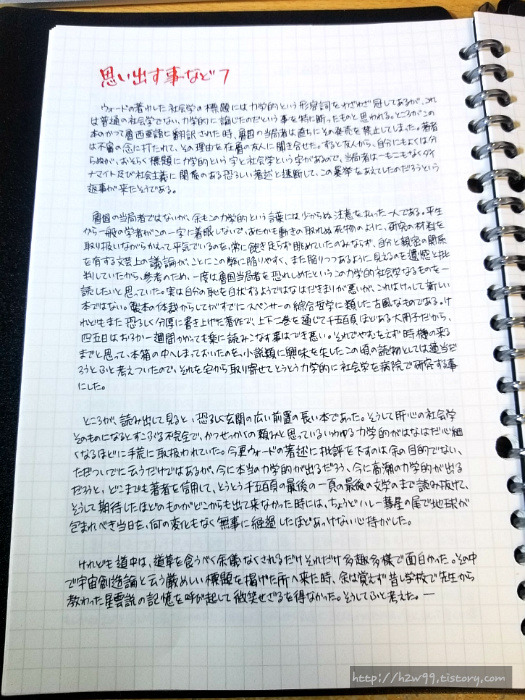 思い出す事など 7
ウォードの著わした社会学の標題には力学的という形容詞をわざわざ冠してあるが、これ
は普通の社会学でない、力学的に論じたのだという事を特に断ったものと思われる。ところがこの
本のかつて露西亜語に翻訳された時、露国の当局者は直ちにその発売を禁止してしまった。著者
は不審の念に打たれて、その理由を在露の友人に聞き合せた。すると友人から、自分にもよくは分
らぬが、おそらく標題に力学的という字と社会学という字があるので、当局者は一も二もなくダイ
ナマイト及び社会主義に関係のある恐ろしい著述と速断して、この暴挙をあえてしたのだろうという
返事が来たそうである。
露国の当局者ではないが、余もこの力学的という語には少からぬ注意を払った一人である。平生
から一般の学者がこの一字に着眼しないで、あたかも動きの取れぬ死物のように、研究の材料を
取り扱いながらかえって平気でいるのを、常に飽き足らず眺めていたのみならず、自分と親密の関係
を有する文芸上の議論が、ことにこの弊に陥りやすく、また陥りつつあるように見えるのを遺憾と批
判していたから、参考のため、一度は露国当局者を恐れしめたというこの力学的社会学なるものを一
読したいと思っていた。実は自分の恥を白状するようではなはだきまりが悪いが、これはけっして新しい
本ではない。製本の体裁からしてがすでにスペンサーの綜合哲学に類した古風なものである。け
れどもまた恐ろしく分厚に書き上げた著作で、上下二巻を通じて千五百頁ほどある大冊子だから、
四五日はおろか一週間かかっても楽に読みこなす事はでき悪い。それでやむをえず時機の来る
までと思って、本箱の中へしまっておいたのを、小説類に興味を失したこの頃の読物としては適当だ
ろうとふと考えついたので、それを宅から取り寄せてとうとう力学的に社会学を病院で研究する事
にした。
ところが、読み出して見ると、恐ろしく玄関の広い前置の長い本であった。そうして肝心の社会学
そのものになるとすこぶる不完全で、かつせっかくの頼みと思っているいわゆる力学的がはなはだ心細
くなるほどに手荒に取扱われていた。今更ウォードの著述に批評を下すのは余の目的でない、
ただついでに云うだけではあるが、今に本当の力学的が出るだろう、今に高潮の力学的が出る
だろうと、どこまでも著者を信用して、とうとう千五百頁の最後の一頁の最後の文字まで読み抜けて、
そうして期待したほどのものがどこからも出て来なかった時には、ちょうどハレー彗星の尾で地球が
包まれべき当日を、何の変化もなく無事に経過したほどあっけない心持がした。
けれども道中は、道草を食うべく余儀なくされるだけそれだけ多趣多様で面白かった。その中
で宇宙創造論と云う厳めしい標題を掲げた所へ来た時、余は覚えず昔し学校で先生から
教わった星雲説の記憶を呼び起して微笑せざるを得なかった。そうしてふと考えた。―
http://h2w99.tistory.com